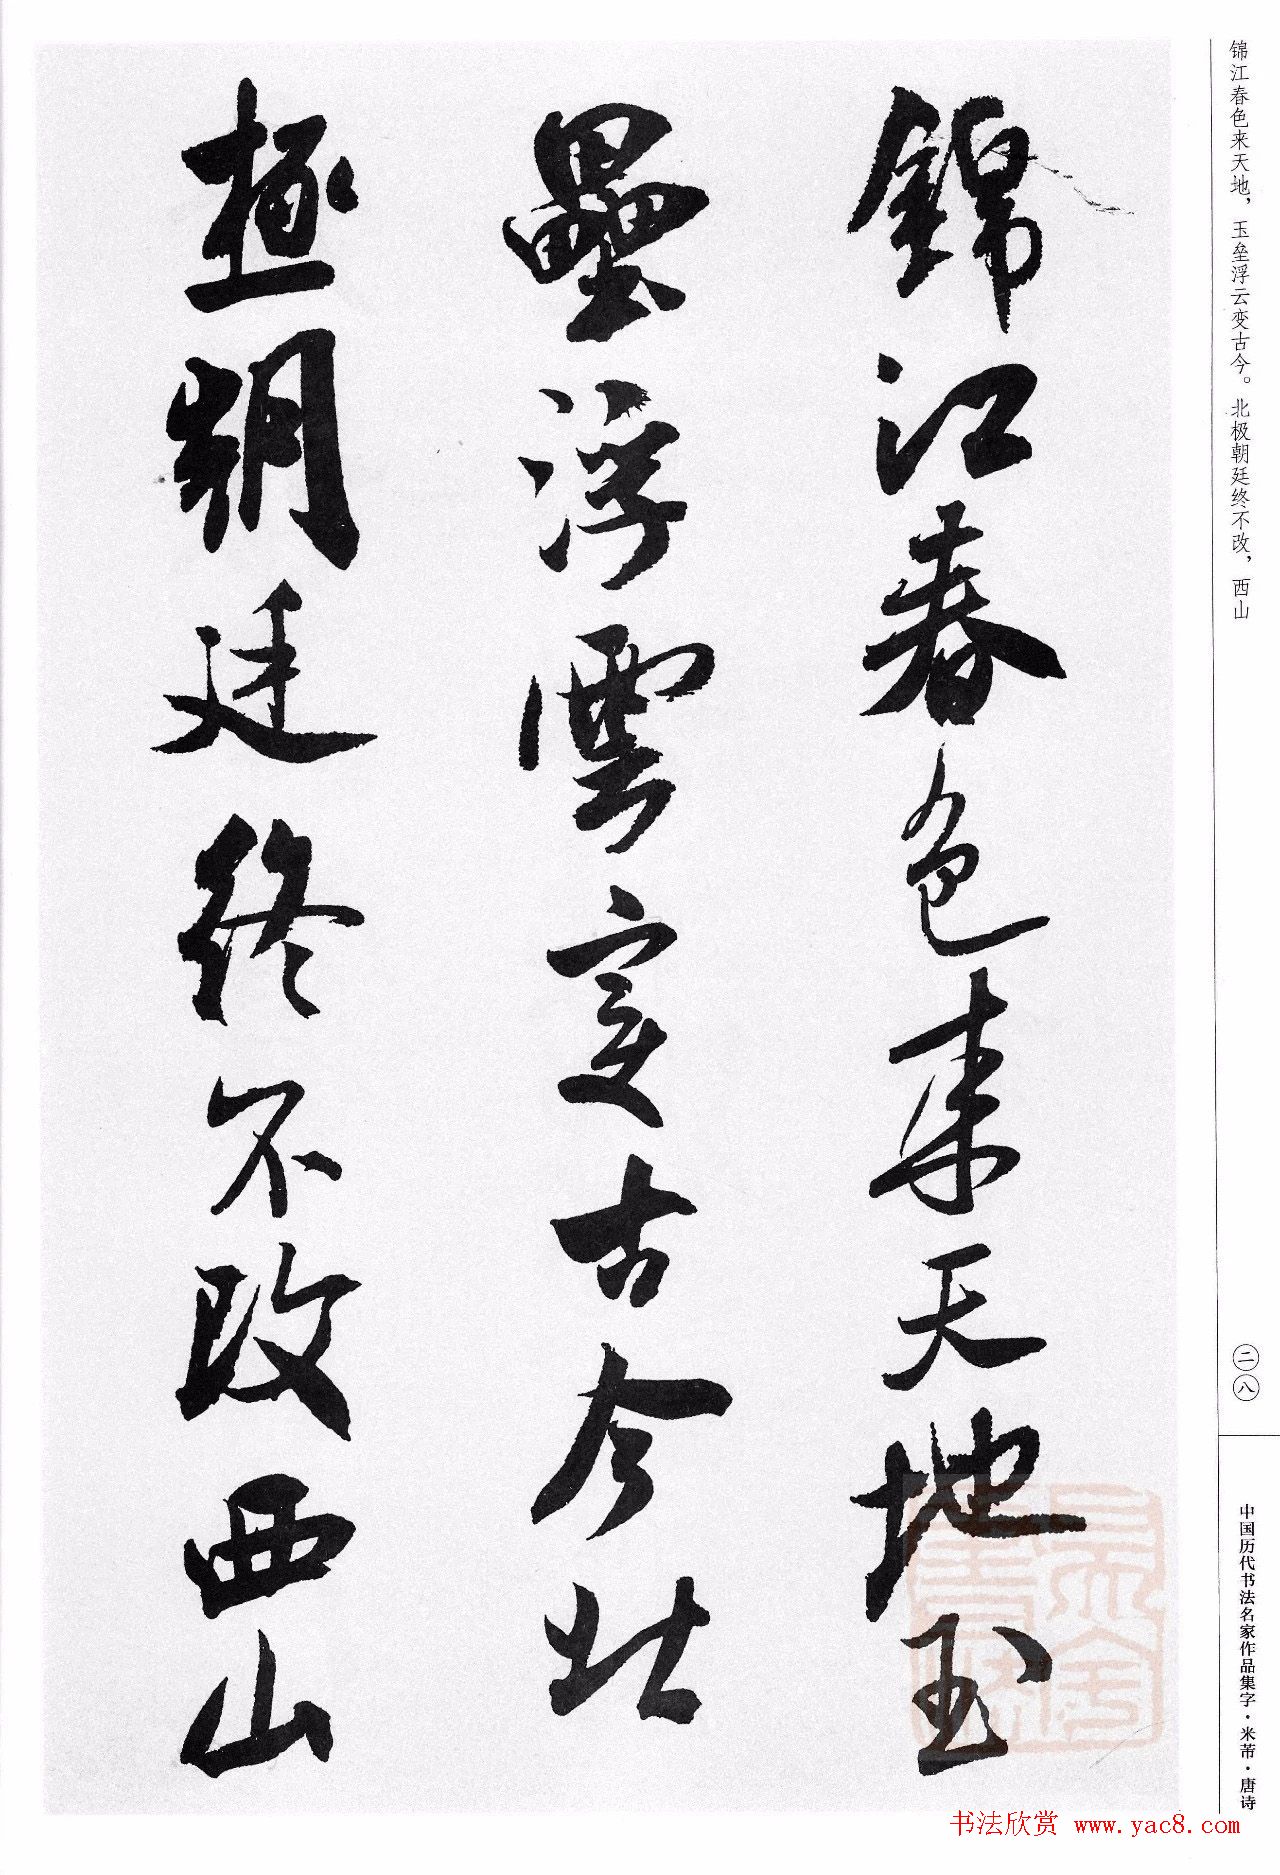 锦江春色来天地，玉垒浮云变古今。北极朝廷终不改，西山
錦江春色来天地玉
壘浮雲変古今北
極朝廷終不改西山
二八
中国历代书法名家作品集字·米芾·唐诗
书法欣赏 www.yac8.com